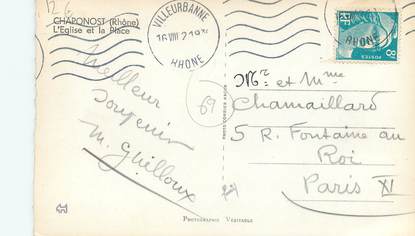 CHAPONOST (Rhône)
L'Eglise et la Place
VILLEURBANNE
RHONE
POSTES
Meilleur
souvenir
M. Guilloux
69
Mr et Mme
Chamaillard
5 R. Fontaine au
Roi
Paris XI
PHOTOGRAPHIE VÉRITABLE